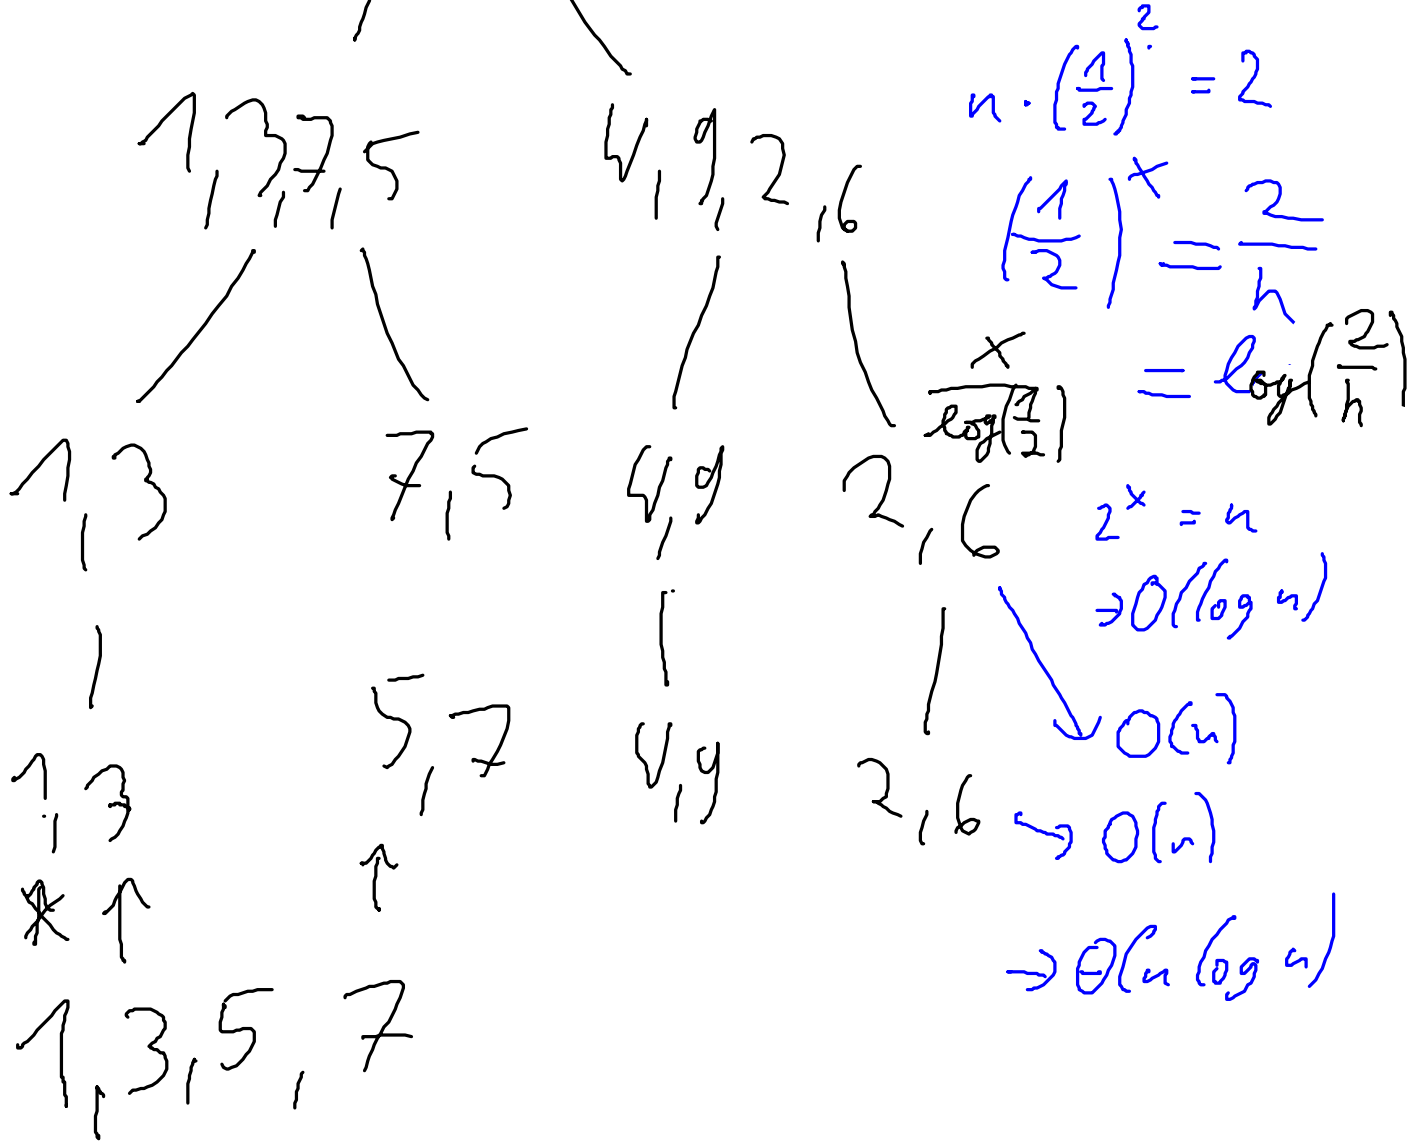 1,3,7,5
4,9,2,6
1,3
7,5
4,9
2,6
1,3
5,7
4,9
2,6
1,3,5,7
n · (1/2)^? = 2
(1/2)^x = 2/n
x/log(1/2) = log(2/n)
2^x = n
→ O(log n)
O(n)
→ O(n)
→ Θ(n log n)